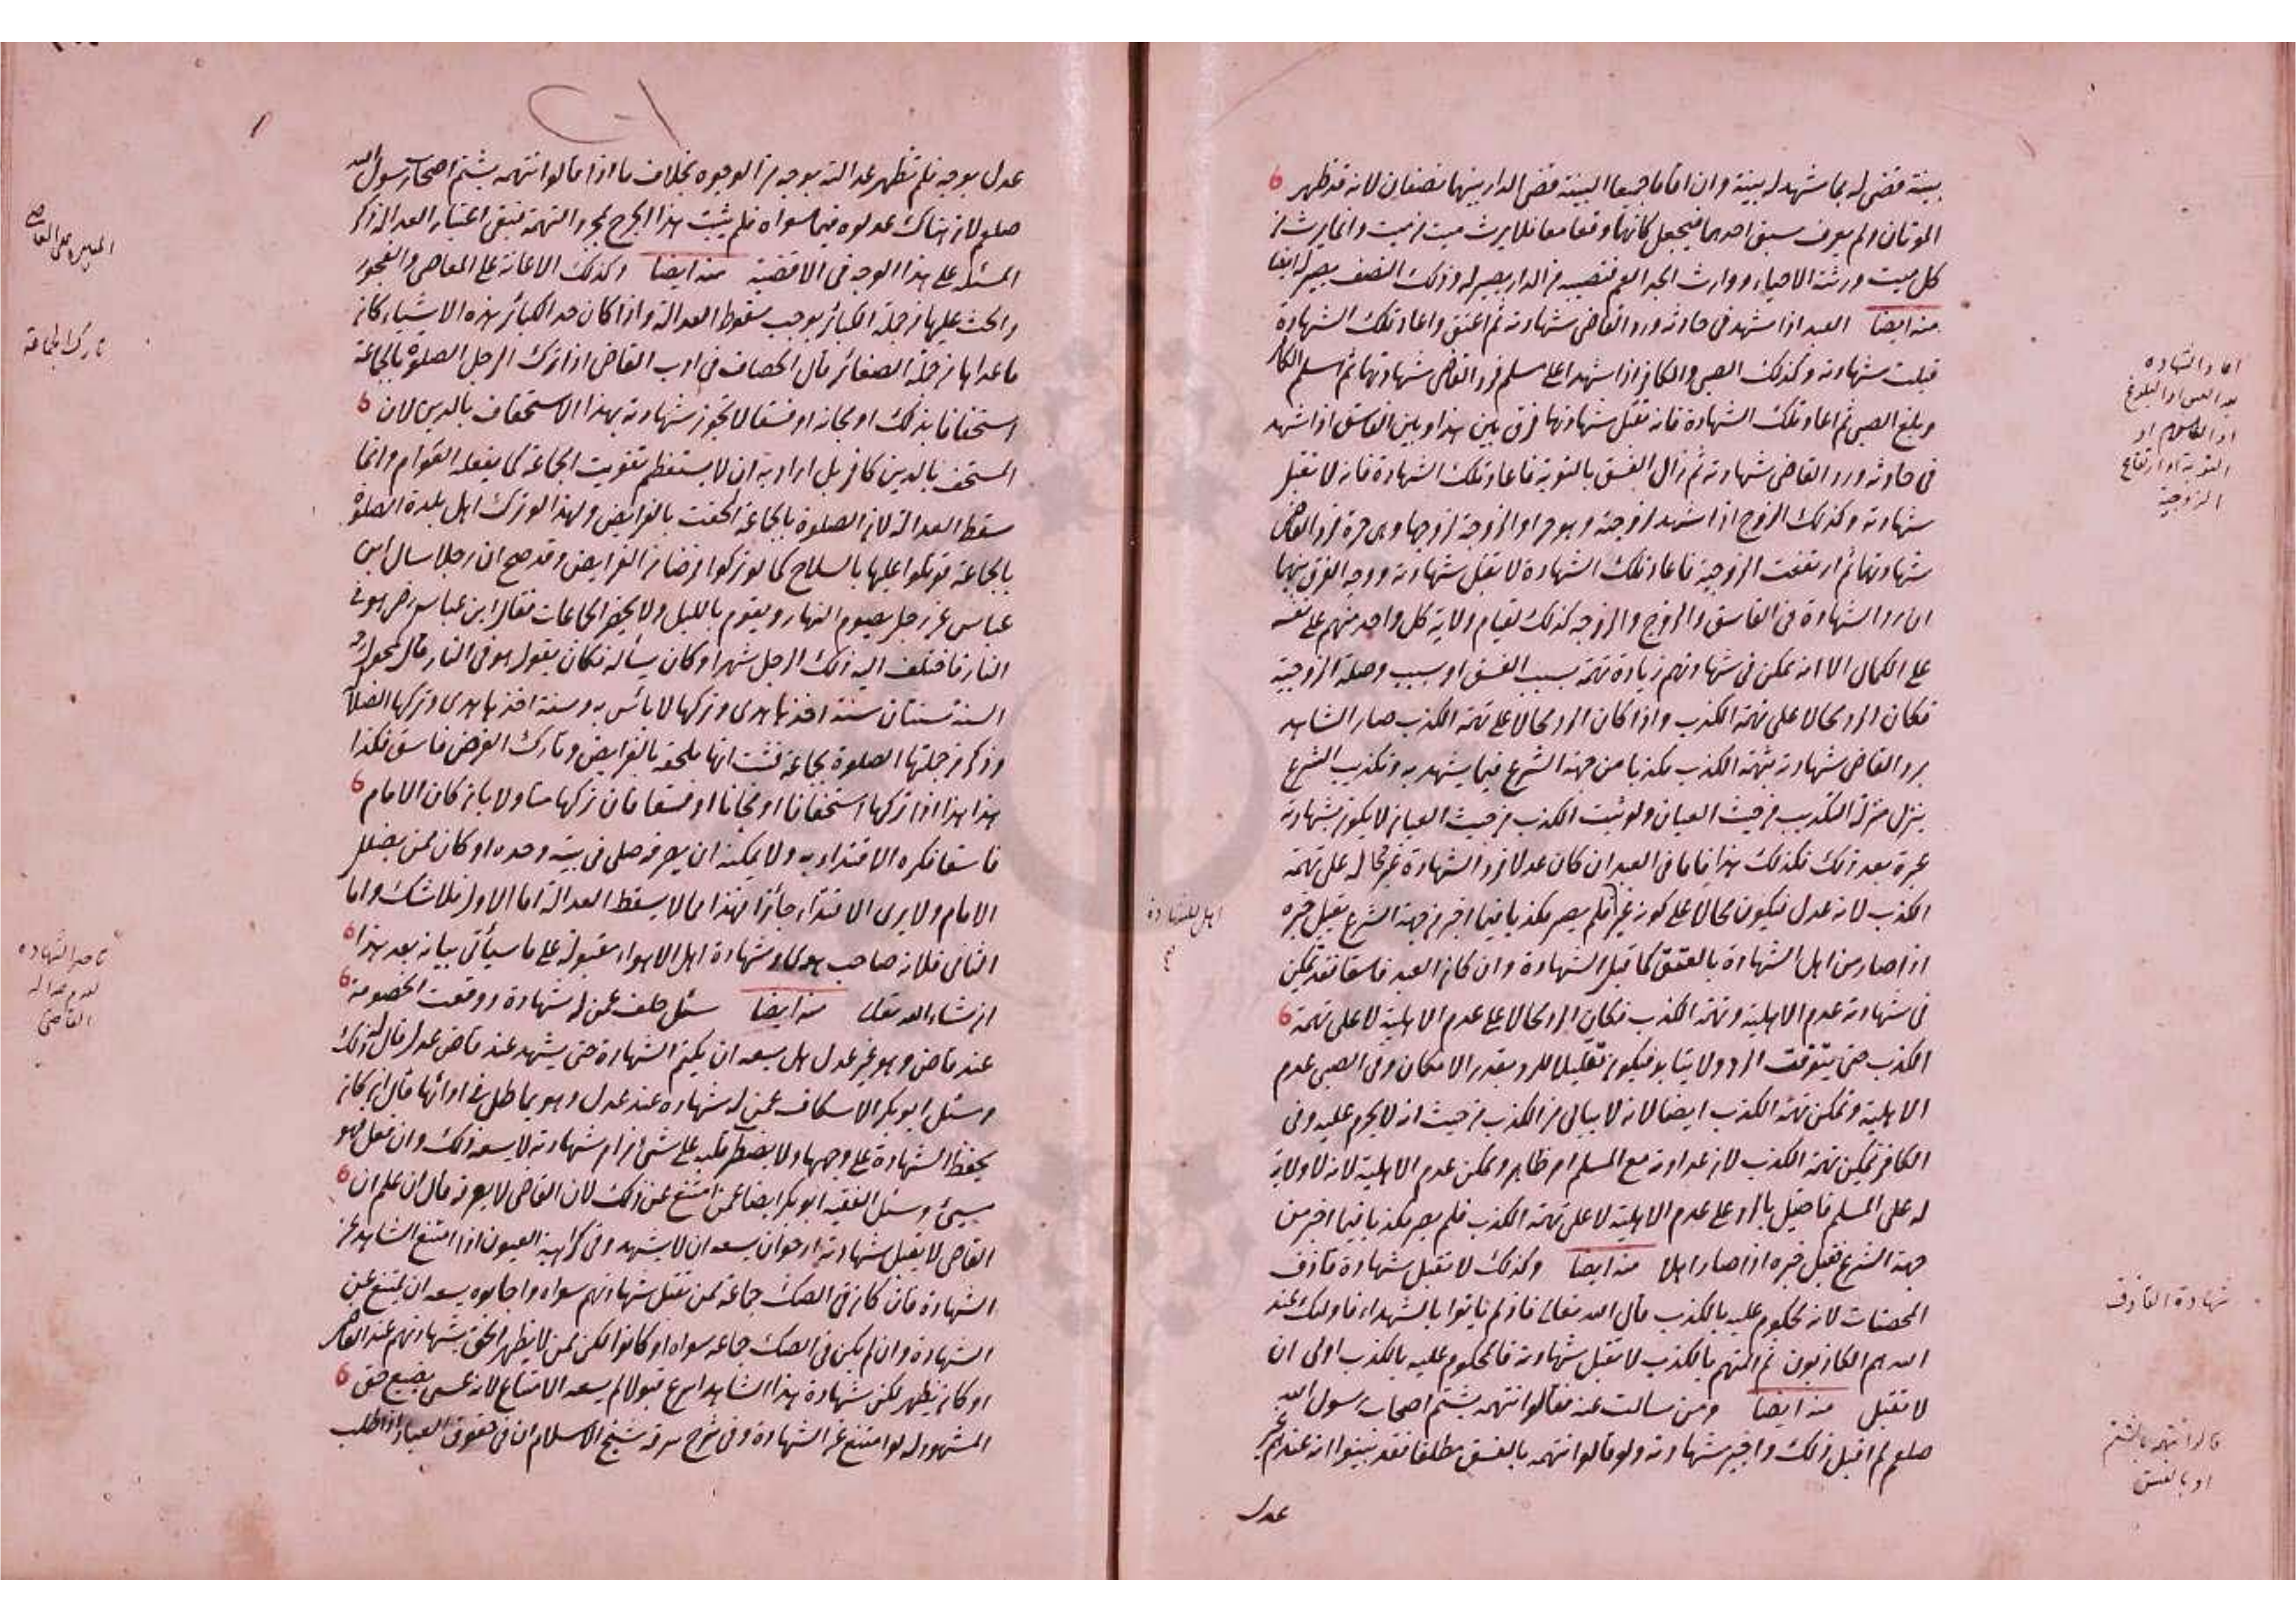 بينة قضى له بما شهد له بينة وان اقاما جميعا البينة قضى الدار بينهما نصفان لانه قد ظهر
الموتان ولم يعرف سبق احدهما فيجعل كانهما وقعا معا فلا يرث ميت من ميت وانما يرث من
كل ميت ورثته الاحياء ووارث الجد العم فنصيبه من الدار يصير له وذلك النصف يصير له ايضا
منه ايضا العبد اذا شهد فى حادثة ورد القاضى شهادته ثم اعتق واعاد تلك الشهادة
قبلت شهادته وكذلك الصبى والكافر اذا شهدا على مسلم فرد القاضى شهادتهما ثم اسلم الكافر
وبلغ الصبى ثم اعاد تلك الشهادة فانه تقبل شهادتهما فرق بين هذا وبين الفاسق اذا شهد
فى حادثة ورد القاضى شهادته ثم زال الفسق بالتوبة فاعاد تلك الشهادة فانه لا تقبل
شهادته وكذلك الزوج اذا شهد لزوجته وهو حر او الزوجة لزوجها وهى حرة فرد القاضى
شهادتهما ثم ارتفعت الزوجية فاعاد تلك الشهادة لا تقبل شهادته ووجه الفرق بينهما
ان رد الشهادة فى الفاسق والزوج والزوجة كذلك لقيام ولاية كل واحد منهم على نفسه
على الكمال الا انه تمكن فى شهادتهم زيادة تهمة بسبب الفسق او بسبب وصلة الزوجية
فكان الرد محالا على تهمة الكذب واذا كان الرد محالا على تهمة الكذب صار الشاهد
برد القاضى شهادته بتهمة الكذب مكذبا من جهة الشرع فيما يشهد به وتكذيب الشرع
ينزل منزلة التكذيب من حيث العيان ولو ثبت الكذب من حيث العيان لا يكون بشهادته
عبرة بعد ذلك فكذلك هذا فاما فى العبد ان كان عدلا فرد الشهادة غير محال على تهمة
الكذب لانه عدل فيكون محالا على كونه غير فلم يصر مكذبا فيما اخبر من جهة الشرع يقبل خبره
اذا صار من اهل الشهادة بالعتق كما قبل الشهادة وان كان العبد فاسقا فقد تمكن
فى شهادته عدم الاهلية وتهمة الكذب فكان الرد محالا على عدم الاهلية لا على تهمة
الكذب حتى يتوقت الرد ولا يتابد فيكون تقليلا للرد بقدر الامكان وفى الصبى عدم
الاهلية وتمكن تهمة الكذب ايضا لانه لا يبالى من الكذب من حيث انه لا يحرم عليه وفى
الكافر تمكن تهمة الكذب لان عداوته مع المسلم امر ظاهر وتمكن عدم الاهلية لانه لا ولاية
له على المسلم فاحيل بالرد على عدم الاهلية لا على تهمة الكذب فلم يصر مكذبا فيما اخبر من
جهة الشرع فقبل خبره اذا صار اهلا منه ايضا وكذلك لا تقبل شهادة قاذف
المحصنات لانه محكوم عليه بالكذب قال الله تعالى فاذ لم ياتوا بالشهداء فاولئك عند
الله هم الكاذبون ثم المتهم بالكذب لا تقبل شهادته فالمحكوم عليه بالكذب اولى ان
لا تقبل منه ايضا ومن سالت عنه فقالوا نتهمه بشتم اصحاب رسول الله
صلعم لم اقبل ذلك واجيز شهادته ولو قالوا نتهمه بالفسق مطلقا فقد بينوا انه عندهم غير
عدل
اعاد الشهادة
بعد العتق او البلوغ
او الاسلام او
التوبة او ارتفاع
الزوجية
اهل للشهادة
صح
شهادة القاذف
قالوا نتهمه بالشتم
او بالفسق
عدل بوجه فلم تظهر عدالته بوجه من الوجوه بخلاف ما اذا قالوا نتهمه بشتم اصحاب رسول الله
صلعم لان هناك عدلوه فيما سواه فلم يثبت هذا الجرح بمجرد التهمة فبقى اعتبار العدالة ذكر
المسئلة على هذا الوجه فى الاقضية منه ايضا وكذلك الاعانة على المعاصى والفجور
والحث عليها من جملة الكبائر يوجب سقوط العدالة واذا كان حد الكبائر هذه الاشياء كان
ما عداها من جملة الصغائر قال الخصاف فى ادب القاضى اذا ترك الرجل الصلوة بالجماعة
استخفافا بذلك او مجانة او فسقا لا تجوز شهادته بهذا الاستخفاف بالدين لان
المستخف بالدين كافر بل اراد به ان لا يستعظم تفويت الجماعة كما يفعله العوام وانما
سقط العدالة لان الصلوة بالجماعة الحقت بالفرايض ولهذا لو ترك اهل بلدة الصلوة
بالجماعة قوتلوا عليها بالسلاح كما لو تركوا فرضا من الفرايض وقد صح ان رجلا سال ابن
عباس عن رجل يصوم النهار ويقوم بالليل ولا يحضر الجماعات فقال ابن عباس رض هو فى
النار فاختلف اليه ذلك الرجل شهرا وكان يسأله فكان يقول هو فى النار قال مكحول
السنة سنتان سنة اخذها هدى وتركها لا بأس به وسنة اخذها هدى وتركها ضلالة
وذكر من جملتها الصلوة بجماعة فثبت انها ملحقة بالفرايض وتارك الفرض فاسق فكذا
هذا هذا اذا تركها استخفافا او مجانا او فسقا فان تركها متاولا بان كان الامام
فاسقا فكره الاقتداء به ولا يمكنه ان يصرفه صلى فى بيته وحده او كان ممن يضلل
الامام ولا يرى الاقتداء جائزا فهذا مما لا يسقط العدالة اما الاول فلا شك واما
الثانى فلانه صاحب هوى وشهادة اهل الاهواء مقبولة على ما سيأتى بيانه بعد هذا
ان شاء الله تعالى منه ايضا سئل خلف عمن له شهادة ووقعت الخصومة
عند قاض وهو غير عدل هل يسعه ان يكتم الشهادة حتى يشهد عند قاض عدل قال له ذلك
وسئل ابو بكر الاسكاف عمن له شهادة عند عدل وهو يماطل فى ادائها قال ان كان
يحفظ الشهادة على وجهها ولا يضطر قلبه على شئ من امر شهادته لا يسعه ذلك وان فعل فهو
مسيئ وسئل الفقيه ابو بكر ايضا عمن امتنع عن ذلك لان القاضى لا يعرفه قال ان علم ان
القاضى لا يقبل شهادته ارجو ان يسعه ان لا يشهد وفى كراهية العيون اذا امتنع الشاهد عن
الشهادة فان كان فى الصك جماعة ممن تقبل شهادتهم سواه واجابوه يسعه ان يمتنع عن
الشهادة وان لم يكن فى الصك جماعة سواه او كانوا لكن ممن لا يظهر الحق بشهادتهم عند القاضى
او كان يظهر لكن شهادة هذا الشاهد اسرع قبولا لم يسعه الامتناع لانه عسى يضيع حق
المشهود له لو امتنع عن الشهادة وفى شرح سرقة شيخ الاسلام ان فى حقوق العباد اذا طلب
تارك الجماعة
تاخير الشهادة
لعدم عدالة
القاضى